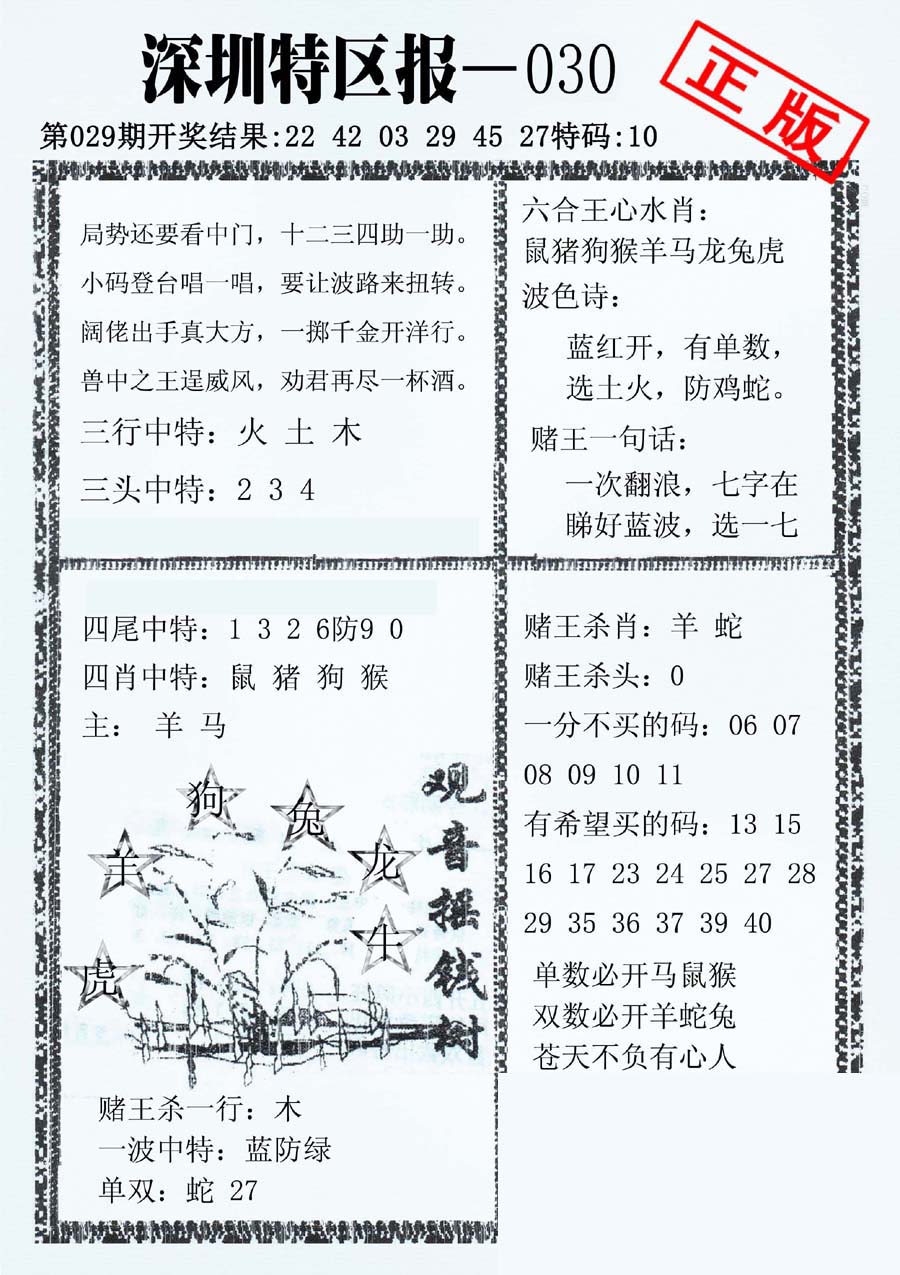 深圳特区报—030
正版
第029期开奖结果:22 42 03 29 45 27特码:10
局势还要看中门，十二三四助一助。
小码登台唱一唱，要让波路来扭转。
阔佬出手真大方，一掷千金开洋行。
兽中之王逞威风，劝君再尽一杯酒。
三行中特：火 土 木
三头中特：2 3 4
六合王心水肖：
鼠猪狗猴羊马龙兔虎
波色诗：
蓝红开，有单数，
选土火，防鸡蛇。
赌王一句话：
一次翻浪，七字在
睇好蓝波，选一七
四尾中特：1 3 2 6防9 0
四肖中特：鼠 猪 狗 猴
主： 羊 马
狗
兔
羊
龙
牛
虎
观音摇钱树
赌王杀一行：木
一波中特：蓝防绿
单双：蛇 27
赌王杀肖：羊 蛇
赌王杀头：0
一分不买的码：06 07
08 09 10 11
有希望买的码：13 15
16 17 23 24 25 27 28
29 35 36 37 39 40
单数必开马鼠猴
双数必开羊蛇兔
苍天不负有心人